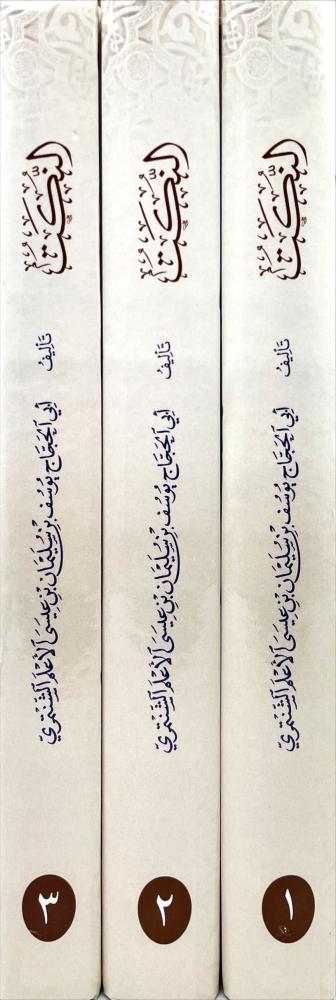 النُّكَتُ
تَأليفُ
أَبِي الحَجَّاجِ يُوسُفَ بْنِ سُلَيْمَانَ بْنِ عِيسَى الأَعْلَمِ الشَّنْتَمَرِيِّ
١
النُّكَتُ
تَأليفُ
أَبِي الحَجَّاجِ يُوسُفَ بْنِ سُلَيْمَانَ بْنِ عِيسَى الأَعْلَمِ الشَّنْتَمَرِيِّ
٢
النُّكَتُ
تَأليفُ
أَبِي الحَجَّاجِ يُوسُفَ بْنِ سُلَيْمَانَ بْنِ عِيسَى الأَعْلَمِ الشَّنْتَمَرِيِّ
٣